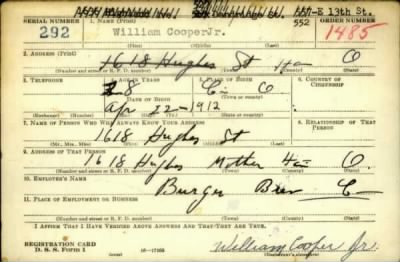 SERIAL NUMBER
1. NAME (Print)
E 13th St.
292
William Cooper Jr.
552
1485
(First) (Middle) (Last)
2. ADDRESS (Print)
1618 Hughes St Ha O
(Number and street or R. F. D. number) (Town) (County) (State)
3. TELEPHONE
4. AGE IN YEARS
5. PLACE OF BIRTH
6. COUNTRY OF CITIZENSHIP
28 O
DATE OF BIRTH
(Town or county)
Apr 22-1912
(Exchange) (Number) (Mo.) (Day) (Yr.) (State or country)
7. NAME OF PERSON WHO WILL ALWAYS KNOW YOUR ADDRESS
8. RELATIONSHIP OF THAT PERSON
1618 Hughes St
(Mr., Mrs., Miss) (First) (Middle) (Last)
9. ADDRESS OF THAT PERSON
1618 Hughes Mother Ha O.
(Number and street or R. F. D. number) (Town) (County) (State)
10. EMPLOYER'S NAME
Burger Brew C
11. PLACE OF EMPLOYMENT OR BUSINESS
(Number and street or R. F. D. number) (Town) (County) (State)
I AFFIRM THAT I HAVE VERIFIED ABOVE ANSWERS AND THAT THEY ARE TRUE.
REGISTRATION CARD
D. S. S. Form 1
William Cooper Jr.
(Registrant's signature)